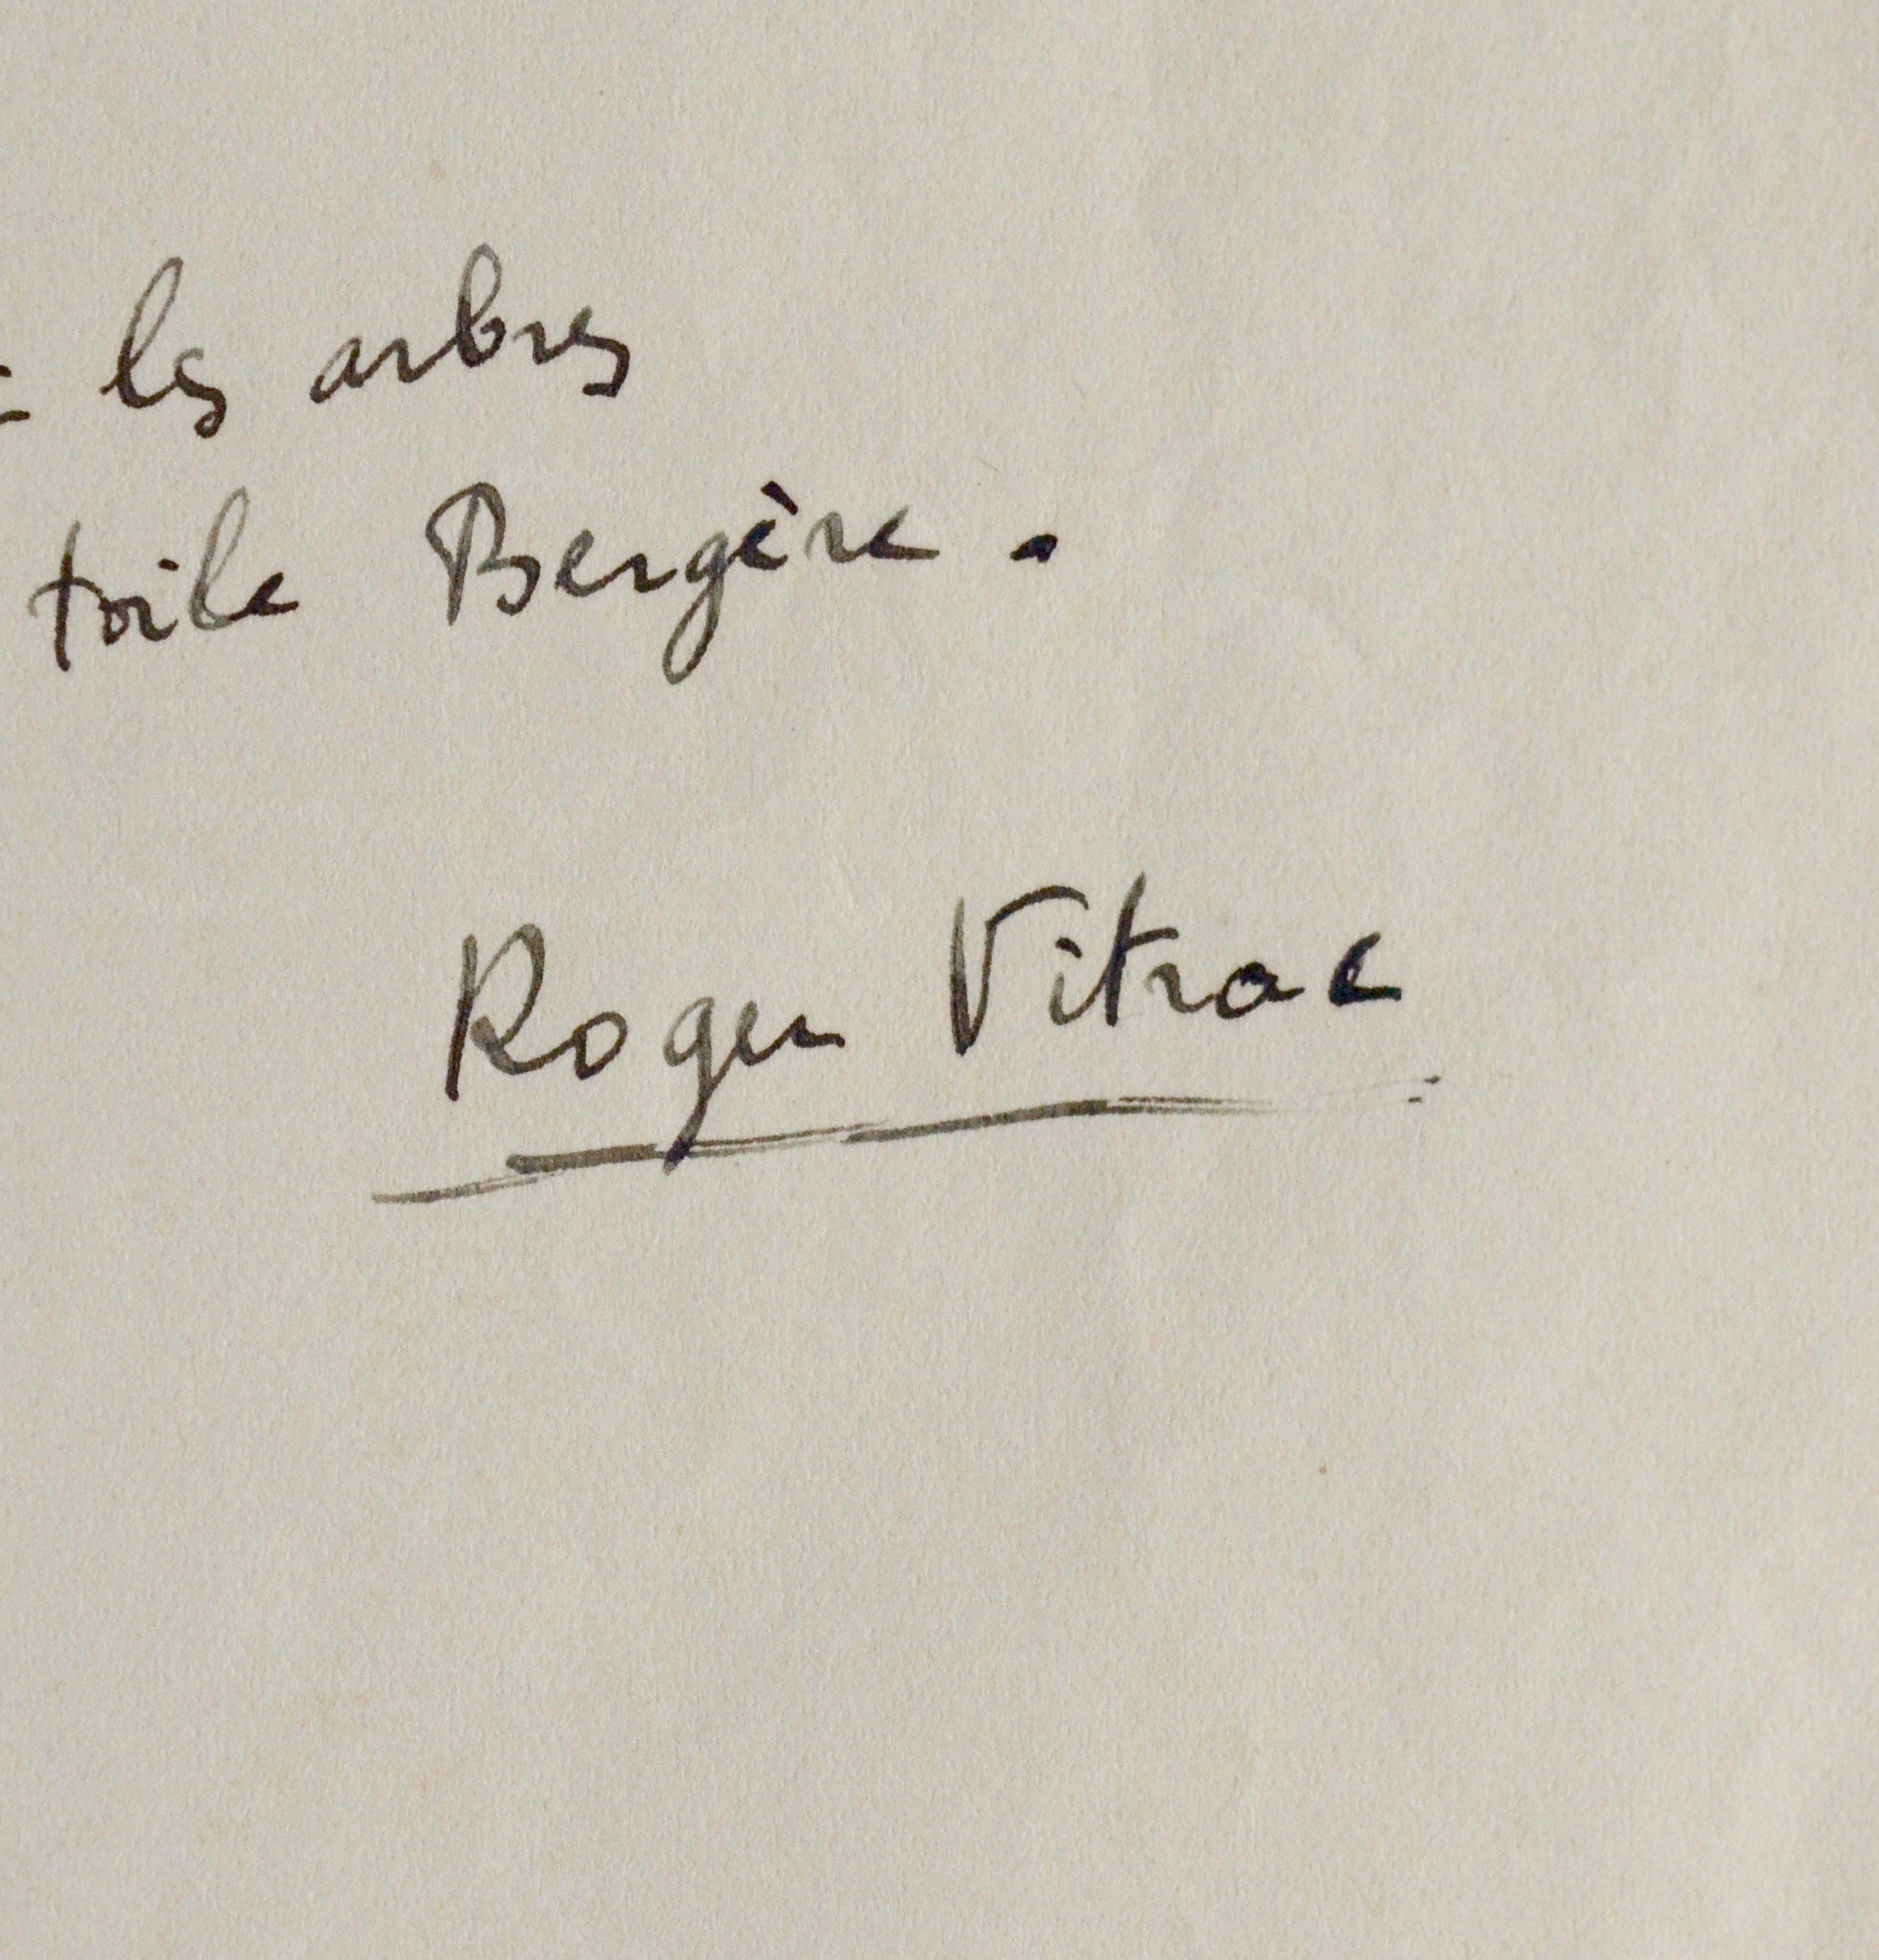 les arbres
toile Bergère.
Roger Vitrac